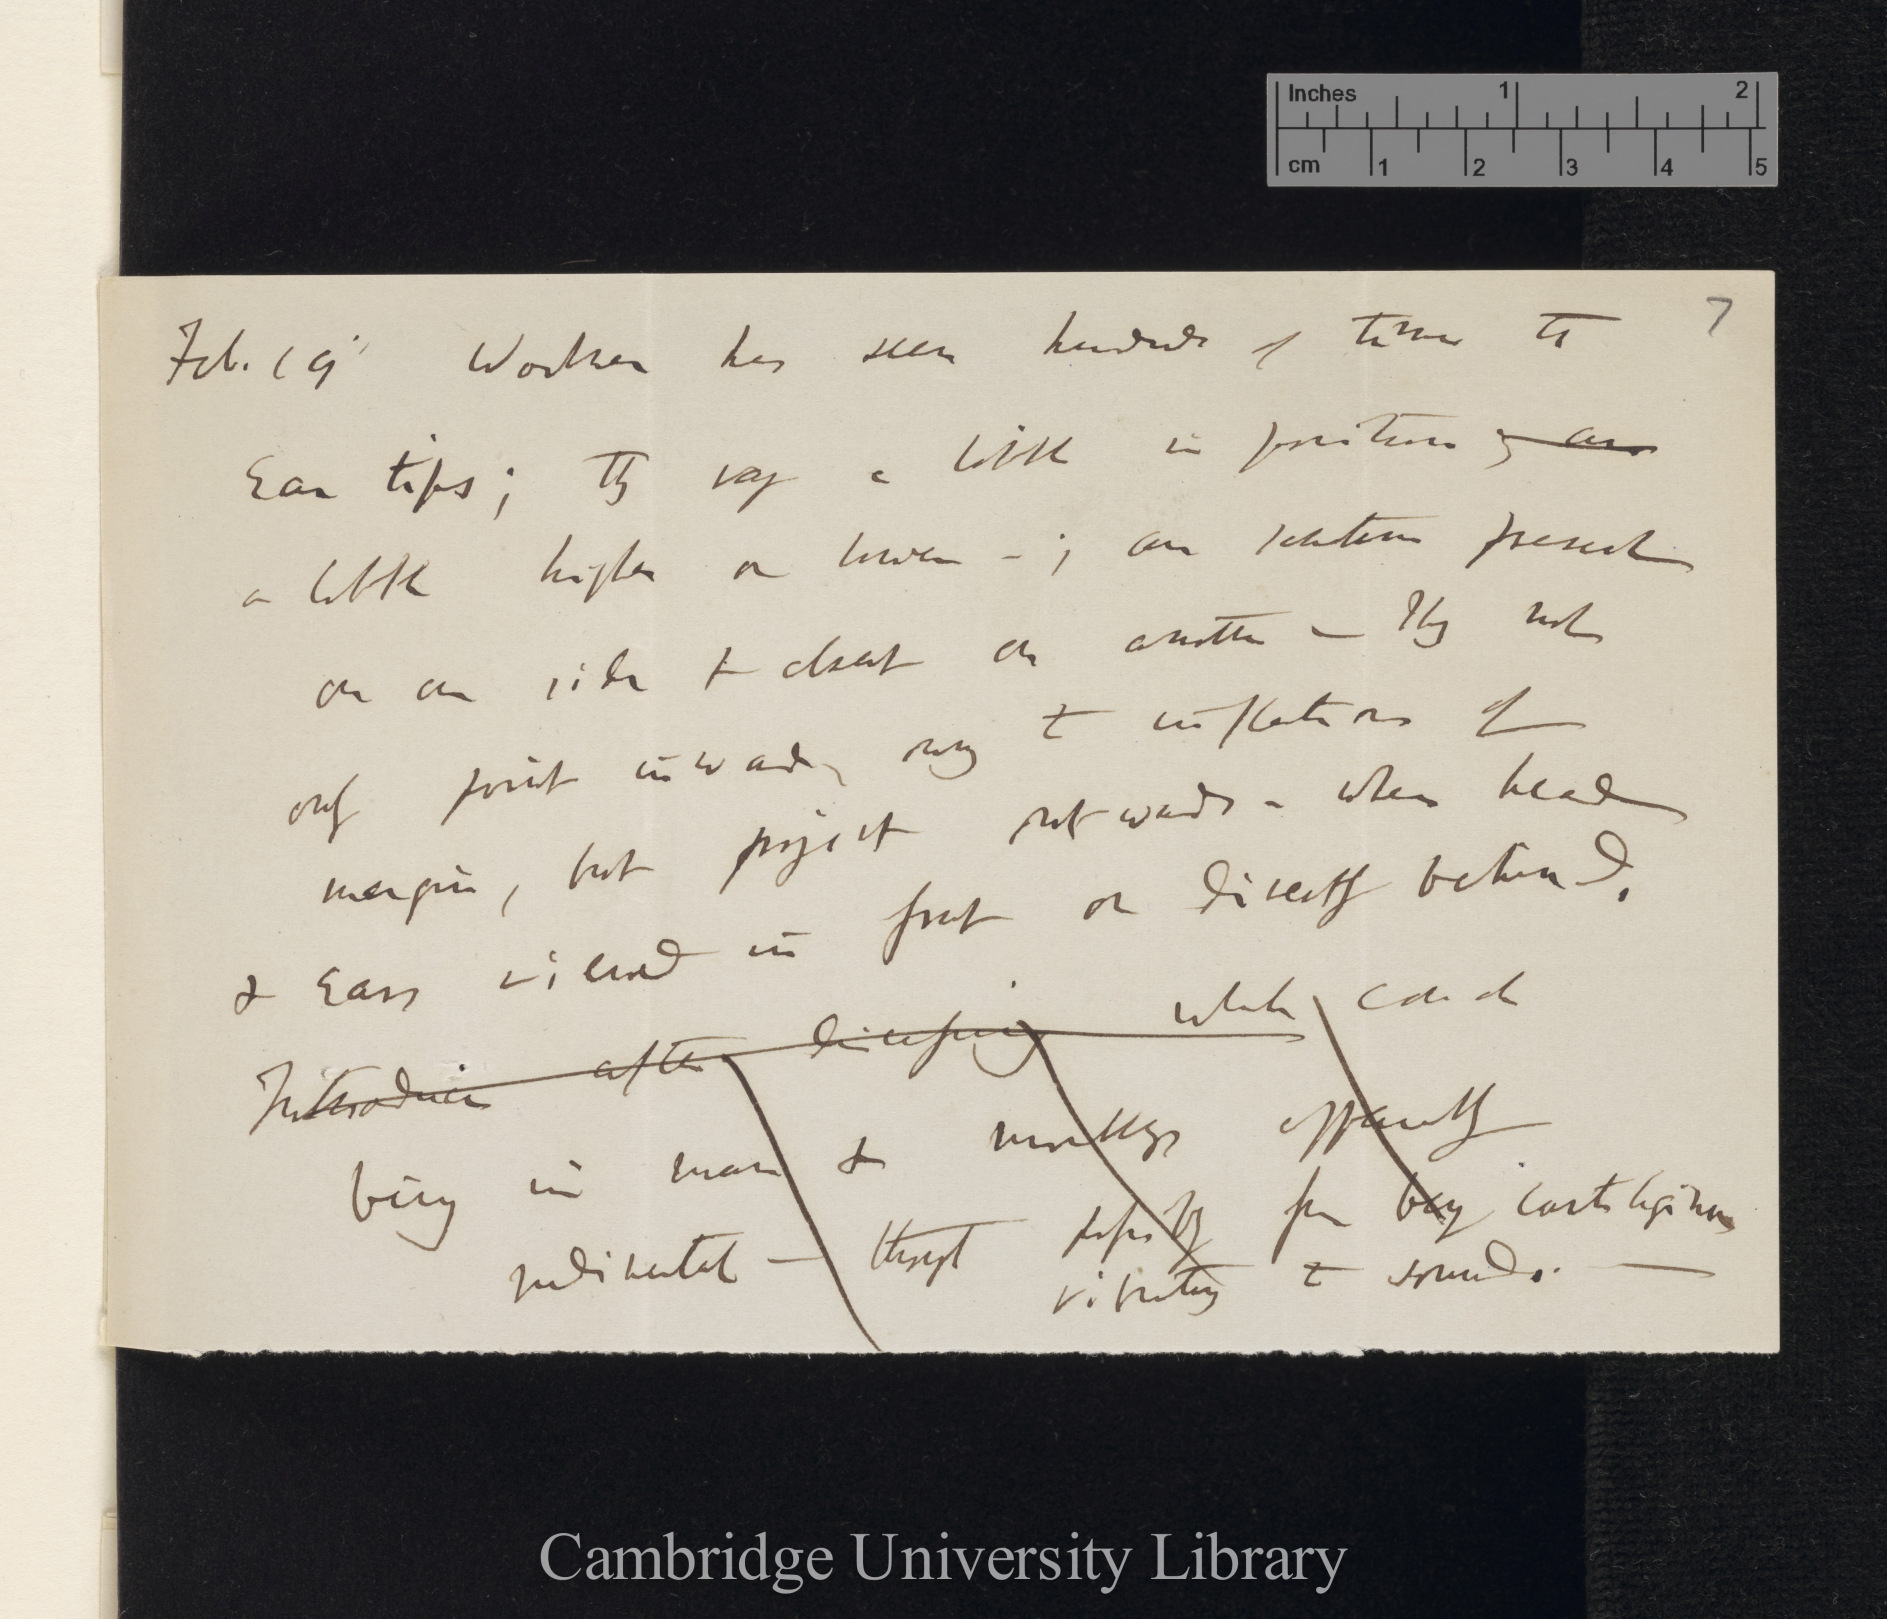 Inches 1 2
cm 1 2 3 4 5
7
Feb. 19' Woolner has seen hundreds of times the
Ear tips; They vary a little in position, are
a little higher or lower —; are sometimes present
on one side & absent on another — They not
only point inwards, owing to inflections of
margin, but project outwards — when head
& Ears viewed in front or directly behind.
Introduce after discussing whole conch
being in man & monkeys apparently
rudimental — though possibly from being cartilaginous
vibrating to sounds. —
Cambridge University Library